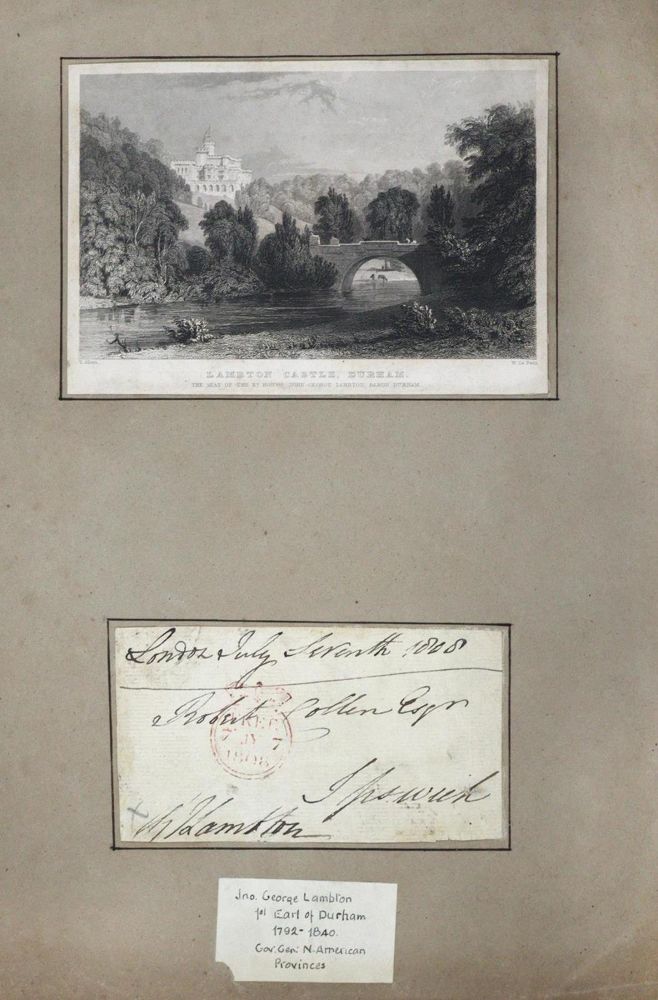 T. Allom.
LAMBTON CASTLE, DURHAM.
THE SEAT OF THE Rt. HONble. JOHN GEORGE LAMBTON, BARON DURHAM.
London July Seventh 1808
Robert Collen Esqr
FREE
7 JY 7
1808
Ipswich
Lambton
Jno. George Lambton
1st Earl of Durham
1792-1840.
Gov. Gen: N. American
Provinces